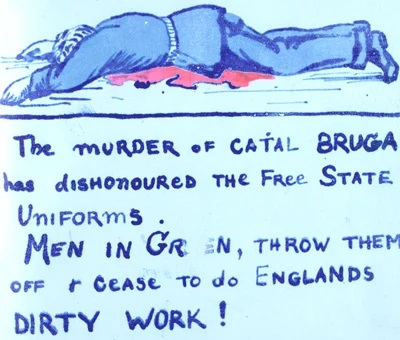 The MURDER OF CAṪAL BRUGA
has DISHONOURED THE FREE STATE
UNIFORMS.
MEN IN GR EN, THROW THEM
OFF & CEASE TO do ENGLANDS
DIRTY WORK!